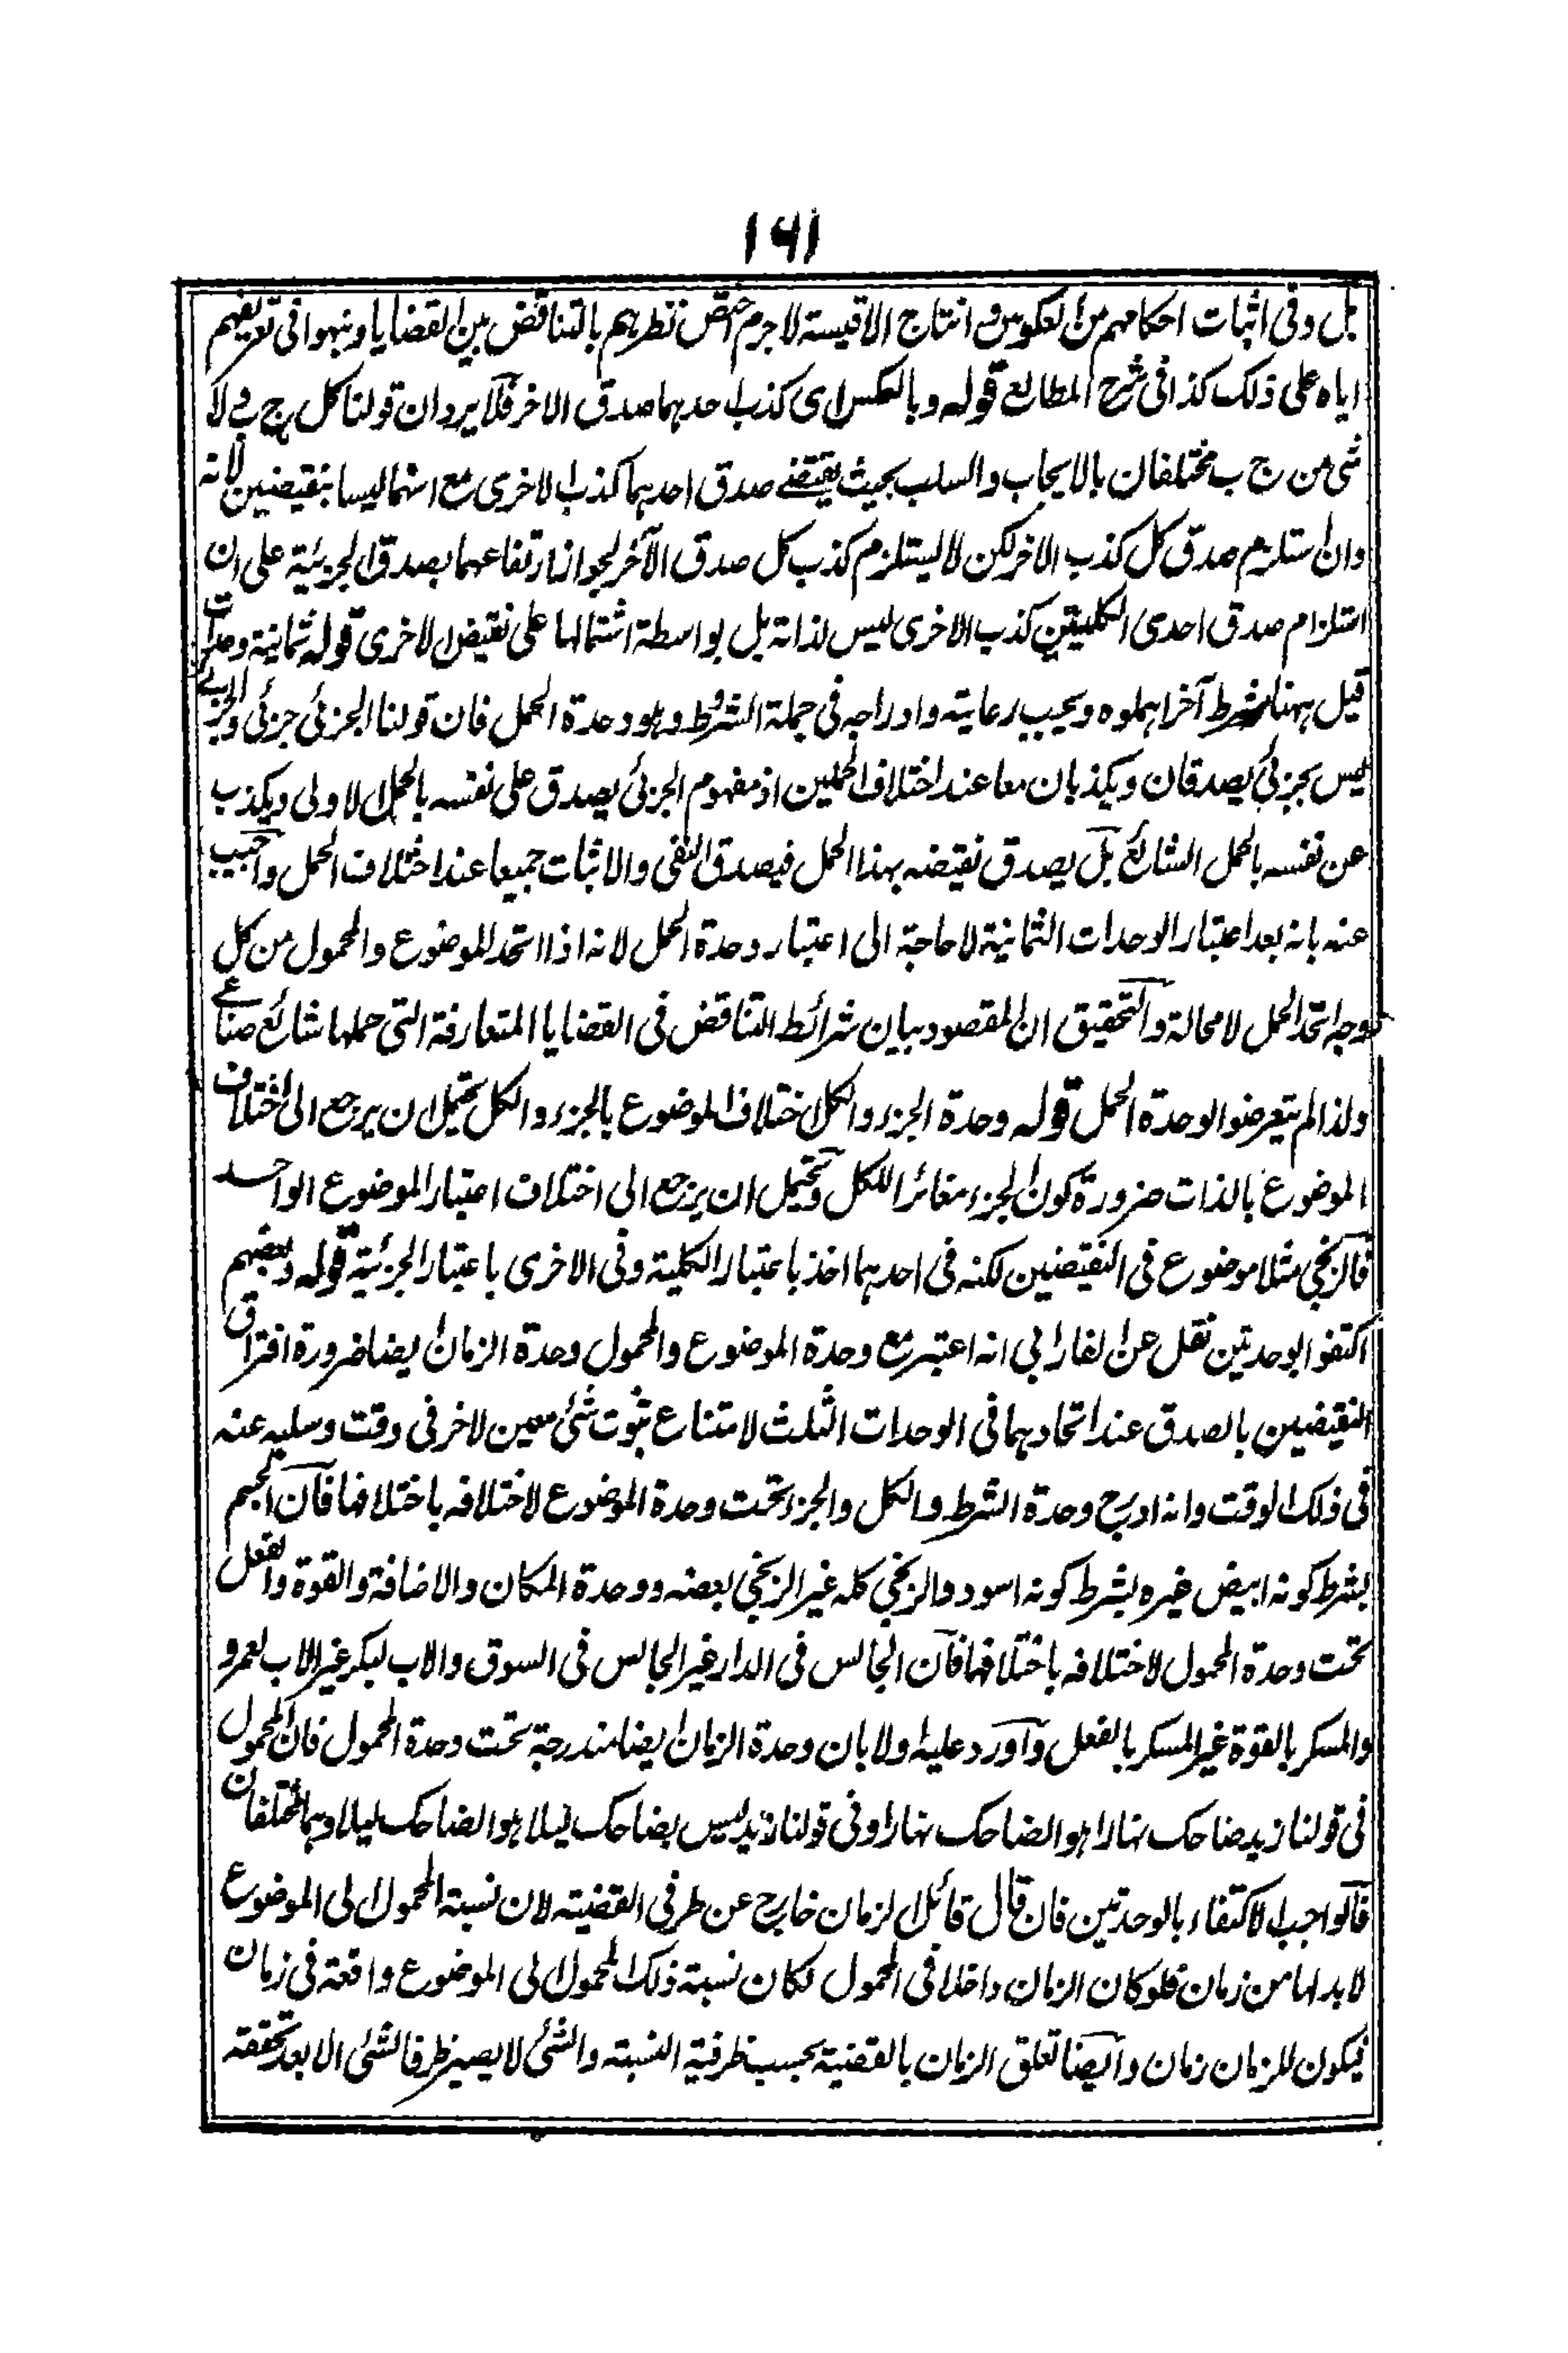 ١٦١
بل وفى اثبات احكامهم من العكوس و انتاج الاقيسة لاجرم اختص نظرهم بالتناقض بين القضايا ونبهوا فى تعريفهم
اياه على ذلك كذا فى شرح المطالع قوله وبالعكس اى كذب احدهما صدق الاخر فلا يرد ان قولنا كل ج ب ولا
شئ من ج ب مختلفان بالايجاب والسلب بحيث يقتضى صدق احدهما كذب الاخرى مع انهما ليسا بنقيضين لانه
وان استلزم صدق كل كذب الاخر لكن لا يستلزم كذب كل صدق الآخر لجواز ارتفاعهما بصدق الجزئية على ان
استلزام صدق احدى الكليتين كذب الاخرى ليس لذاته بل بواسطة اشتمالها على نقيض الاخرى قوله ثمانية وحدات
قيل ههنا شرط آخر اهملوه ويجب رعايته وادراجه فى جملة الشروط وهو وحدة الحمل فان قولنا الجزئى جزئى والجزئى
ليس بجزئى يصدقان ويكذبان معا عند اختلاف الحملين اذ مفهوم الجزئى يصدق على نفسه بالحمل الاولى ويكذب
عن نفسه بالحمل الشائع بل يصدق نقيضه بهذا الحمل فيصدق النفى والاثبات جميعا عند اختلاف الحمل واجيب
عنه بانه بعد اعتبار الوحدات الثمانية لا حاجة الى اعتبار وحدة الحمل لانه اذا اتحد الموضوع والمحمول من كل
وجه اتحد الحمل لا محالة والتحقيق ان المقصود بيان شرائط التناقض فى القضايا المتعارفة التى حملها شائع صناعى
ولذا لم يتعرضوا لوحدة الحمل قوله وحدة الجزء والكل اختلاف الموضوع بالجزء والكل يحتمل ان يرجع الى اختلاف
الموضوع بالذات ضرورة كون الجزء مغائرا للكل ويحتمل ان يرجع الى اختلاف اعتبار الموضوع الواحد
فالزنجى مثلا موضوع فى النقيضين لكنه فى احدهما اخذ باعتبار الكلية وفى الاخرى باعتبار الجزئية قوله وبعضهم
اكتفوا بوحدتين نقل عن الفارابى انه اعتبر مع وحدة الموضوع والمحمول وحدة الزمان ايضا ضرورة افتراق
النقيضين بالصدق عند اتحادهما فى الوحدات الثلث لامتناع ثبوت شئ معين لاخر فى وقت وسلبه عنه
فى ذلك الوقت وانه ادرج وحدة الشرط والكل والجزء تحت وحدة الموضوع لاختلافه باختلافها فان الجسم
بشرط كونه ابيض غيره بشرط كونه اسود والزنجى كله غير الزنجى بعضه ووحدة المكان والاضافة والقوة والفعل
تحت وحدة المحمول لاختلافه باختلافها فان الجالس فى الدار غير الجالس فى السوق والاب لبكر غير الاب لعمرو
والمسكر بالقوة غير المسكر بالفعل واورد عليه اولا بان وحدة الزمان ايضا مندرجة تحت وحدة المحمول فان المحمول
فى قولنا زيد ضاحك نهارا هو الضاحك نهارا وفى قولنا زيد ليس بضاحك ليلا هو الضاحك ليلا وهما مختلفان
فالواجب الاكتفاء بالوحدتين فان قال قائل الزمان خارج عن طرفى القضية لان نسبة المحمول الى الموضوع
لابد لها من زمان فلو كان الزمان داخلا فى المحمول لكان نسبة ذلك المحمول الى الموضوع واقعة فى زمان
فيكون للزمان زمان وايضا تعلق الزمان بالقضية بحسب ظرفية النسبة والشئ لا يصير ظرفا لشئ الا بعد تحققه